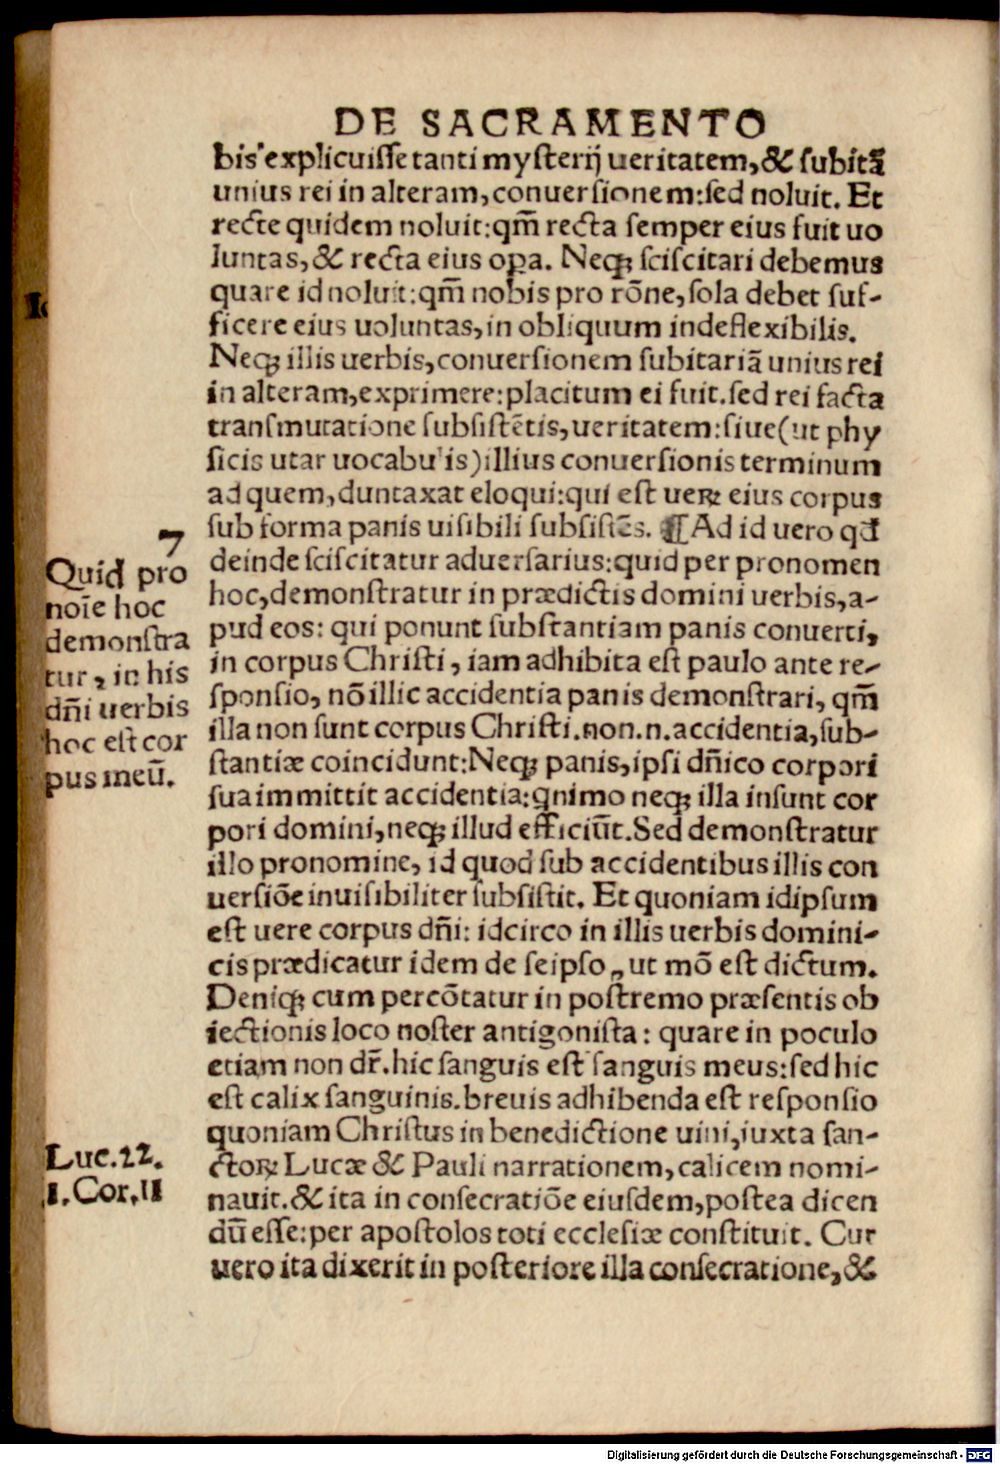 DE SACRAMENTO
bis explicuisse tanti mysterij ueritatem, & subitā
unius rei in alteram, conuersionem: sed noluit. Et
recte quidem noluit: qm̄ recta semper eius fuit uo
luntas, & recta eius opa. Neqȝ sciscitari debemus
quare id noluit: qm̄ nobis pro rōne, sola debet suf-
ficere eius uoluntas, in obliquum indeflexibilis.
Neqȝ illis uerbis, conuersionem subitariā unius rei
in alteram, exprimere: placitum ei fuit. sed rei facta
transmutatione subsistētis, ueritatem: siue (ut phy
sicis utar uocabulis) illius conuersionis terminum
ad quem, duntaxat eloqui: qui est ueꝝ eius corpus
sub forma panis uisibili subsistēs. ¶ Ad id uero qđ
deinde sciscitatur aduersarius: quid per pronomen
hoc, demonstratur in prædictis domini uerbis, a-
pud eos: qui ponunt substantiam panis conuerti,
in corpus Christi, iam adhibita est paulo ante re-
sponsio, nō illic accidentia panis demonstrari, qm̄
illa non sunt corpus Christi. non. n. accidentia, sub-
stantiæ coincidunt: Neqȝ panis, ipsi dñico corpori
sua immittit accidentia: qnimo neqȝ illa insunt cor
pori domini, neqȝ illud efficiūt. Sed demonstratur
illo pronomine, id quod sub accidentibus illis con
uersiōe inuisibiliter subsistit. Et quoniam idipsum
est uere corpus dñi: idcirco in illis uerbis domini-
cis prædicatur idem de seipso, ut mō est dictum.
Deniqȝ cum percōtatur in postremo præsentis ob
iectionis loco noster antigonista: quare in poculo
etiam non dr̄. hic sanguis est sanguis meus: sed hic
est calix sanguinis. breuis adhibenda est responsio
quoniam Christus in benedictione uini, iuxta san-
ctoꝝ Lucæ & Pauli narrationem, calicem nomi-
nauit. & ita in consecratiōe eiusdem, postea dicen
dū esse: per apostolos toti ecclesiæ constituit. Cur
uero ita dixerit in posteriore illa consecratione, &
7
Quid pro
noīe hoc
demonstra
tur, in his
dñi uerbis
hoc est cor
pus meū.
Luc. 22.
1. Cor. 11
Digitalisierung gefördert durch die Deutsche Forschungsgemeinschaft - DFG